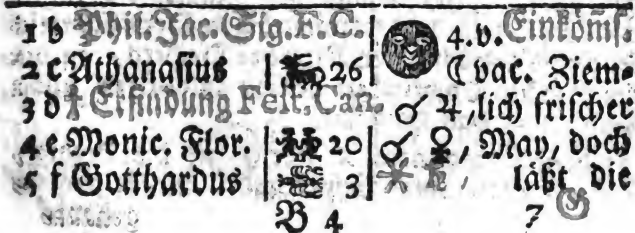 1 b Phil. Jac. Sig. F. C. 4. v. Einkömſ.
2 c Athanaſius 26 ☾ vac. Ziem-
3 d † Erfindung Feſt. Can. ☌ ♃, lich friſcher
4 e Monic. Flor. 20 ☌ ♀, May, doch
5 f Gotthardus 3 ✶ ♄, läßt die
B 4 7 G